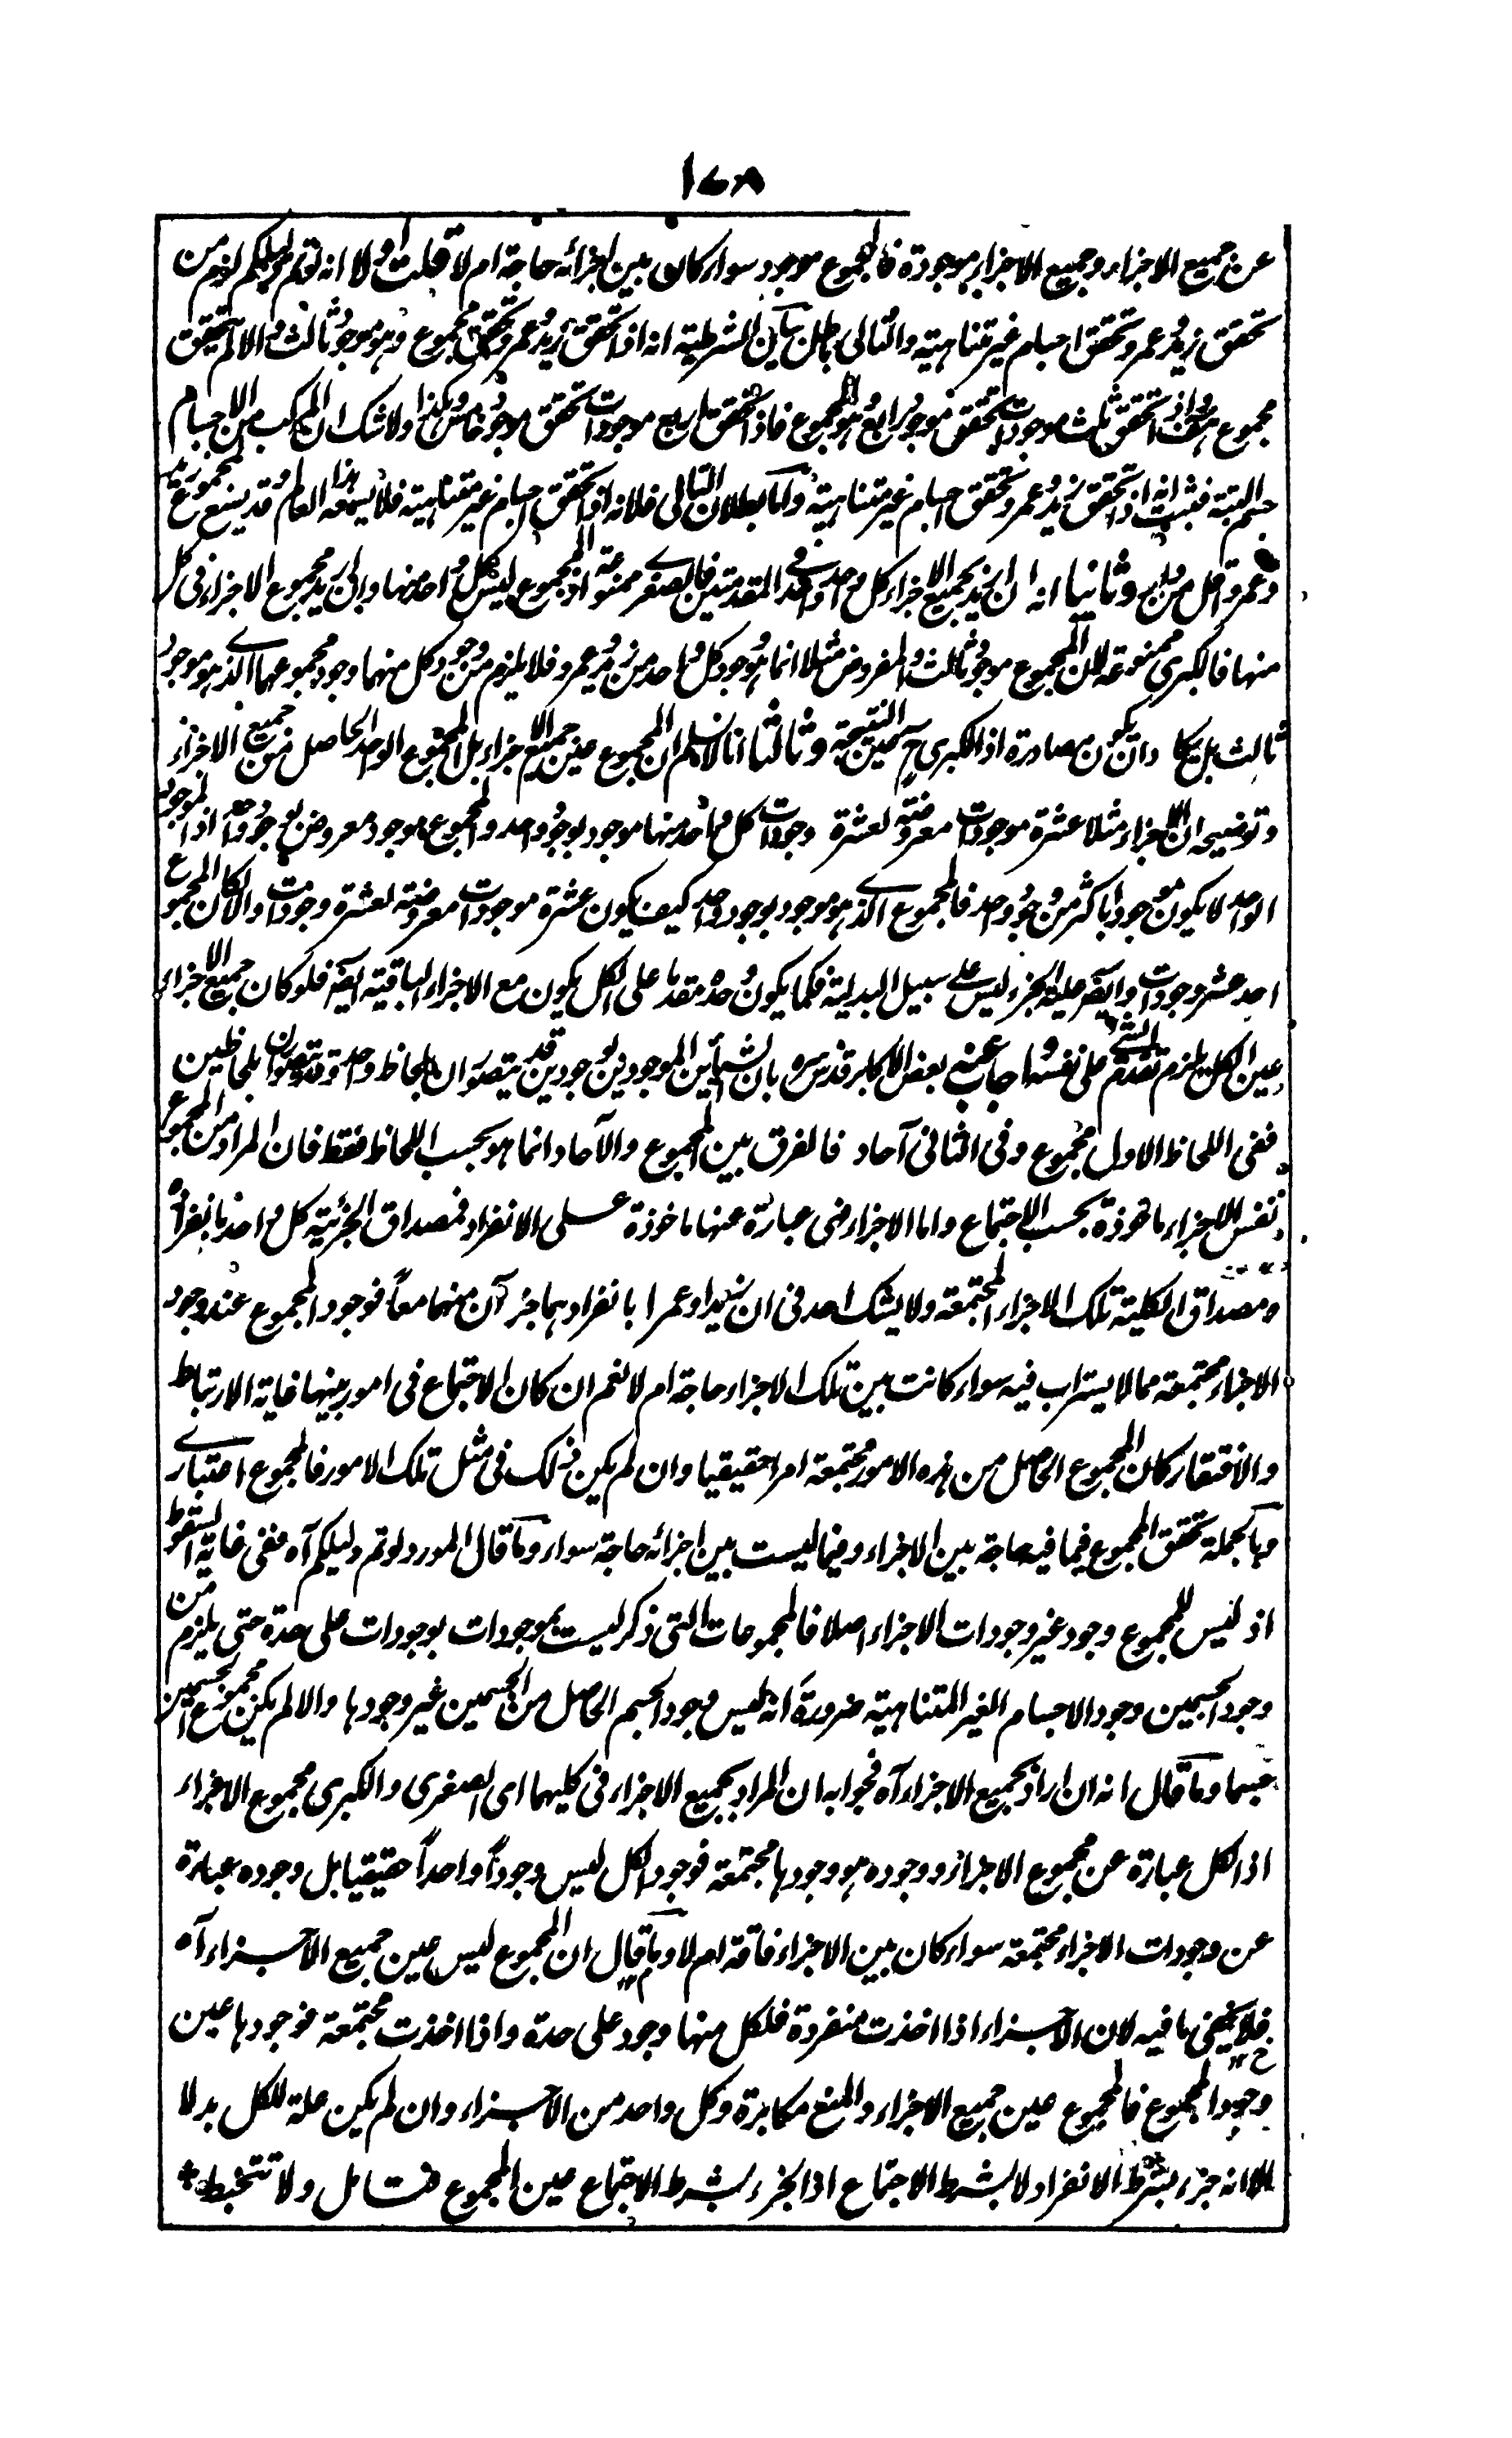 ١٧٨
عن جميع الاجزاء وجميع الاجزاء موجودة فالمجموع موجود سواء كان بين اجزائه حاجة ام لا قلت اولا انه لو تم دليلكم لزم من
تحقق زيد وعمرو تحقق اجسام غير متناهية والتالى باطل بيان الشرطية انه اذا تحقق زيد وعمرو تحقق مجموع وهو موجود ثالث والا لم يتحقق
مجموع هف واذا تحقق ثلث موجودات تحقق موجود رابع هو المجموع فاذا تحقق اربع موجودات تحقق موجود خامس وهكذا ولا شك ان المركب من الاجسام
جسم البتة فثبت انه اذا تحقق زيد وعمرو تحقق اجسام غير متناهية واما بطلان التالى فلانه اذا تحقق اجسام غير متناهية فلا يسعها هذا العالم وقد يسع مجموع زيد
وعمرو اقل من وثانيا انه ان اريد بجميع الاجزاء كل واحد واحد فى المقدمتين فالصغرے ممنوعة اذ المجموع ليس كل واحد منها وان اريد مجموع الاجزاء فى كل
منها فالكبرى ممنوعة لان المجموع موجود ثالث والمفروض مثلا انما هو وجود كل واحد من زيد وعمرو فلا يلزم من وجود كل منهما وجود مجموعهما الذے هو موجود
ثالث بل يكاد ان يكون مصادرة اذ الكبرى ح عين النتيجة وثالثا انا لا نسلم ان المجموع عين جميع الاجزاء بل المجموع الواحد الحاصل من جميع الاجزاء
وتوضيحه ان الاجزاء مثلا عشرة موجودات معروضة لعشرة وجودات كل واحد منها موجود بوجود واحد والمجموع موجود معروض لوجود واحد اذ الموجود
الواحد لا يكون موجودا باكثر من وجود واحد فالمجموع الذے هو موجود بوجود واحد كيف يكون عشرة موجودات معروضة لعشرة وجودات والا لكان المجموع
احد عشر وجودات وايضا علية الجزء ليس على سبيل البدلية فكما يكون وحده مقدما على الكل يكون مع الاجزاء الباقية ايضا فلو كان جميع الاجزاء
عين الكل يلزم تقدم الشئ على نفسه واجاب عنه بعض الاكابر قدس سره بان الشيئين الموجودين بوجودين قد يتصوران بلحاظ واحد وقد يتصوران بلحاظين
ففى اللحاظ الاول مجموع وفى الثانى آحاد فالفرق بين المجموع والآحاد انما هو بحسب اللحاظ فقط فان المراد من المجموع
نفس الاجزاء ماخوذة بحسب الاجتماع واما الاجزاء فهى عبارة عنها ماخوذة على الانفراد فمصداق الجزئية كل واحد بانفراده
ومصداق الكلية تلك الاجزاء المجتمعة ولا يشك احد فى ان زيدا وعمرا بانفرادهما جزآن منهما معاً فوجود المجموع عند وجود
الاجزاء مجتمعة مما لا يستراب فيه سواء كانت بين تلك الاجزاء حاجة ام لا نعم ان كان الاجتماع فى امور بينها غاية الارتباط
والافتقار كان المجموع الحاصل من هذه الامور مجتمعة امرا حقيقيا وان لم يكن ذلك فى مثل تلك الامور فالمجموع اعتبارے
وبالجملة تحقق المجموع فيما فيه حاجة بين الاجزاء وفيما ليست بين اجزائه حاجة سواء وما قال المورد لو تم دليلكم آه ففى غاية السقوط
اذ ليس للمجموع وجود غير وجودات الاجزاء اصلا فالمجموعات التى ذكر ليست بموجودات بوجودات على حدة حتى يلزم من
وجود الجسمين وجود الاجسام الغير المتناهية ضرورة انه ليس وجود الجسم الحاصل من الجسمين غير وجودها والا لم يكن مجموع الجسمين
جسما وما قال انه ان اراد بجميع الاجزاء آه فجوابه ان المراد بجميع الاجزاء فى كليهما اى الصغرى والكبرى مجموع الاجزاء
اذ الكل عبارة عن مجموع الاجزاء ووجوده هو وجودها مجتمعة فوجود الكل ليس وجوداً واحداً حقيقيا بل وجوده عبارة
عن وجودات الاجزاء مجتمعة سواء كان بين الاجزاء فاقة ام لا وما قال ان المجموع ليس عين جميع الاجزاء آه
فلا يخفى ما فيه لان الاجزاء اذا اخذت منفردة فلكل منها وجود على حدة واذا اخذت مجتمعة فوجودها عين
وجود المجموع فالمجموع عين جميع الاجزاء والمنع مكابرة وكل واحد من الاجزاء وان لم يكن علة للكل بدلا
الا انه جزء بشرط الانفراد لا بشرط الاجتماع اذ الجزء بشرط الاجتماع عين المجموع فتامل ولا تتخبط *